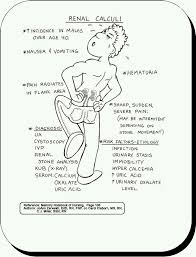 RENAL CALCULI
↑INCIDENCE IN MALES
OVER AGE 40
•NAUSEA & VOMITING
•HEMATURIA
•PAIN RADIATES
IN FLANK AREA
•SHARP, SUDDEN,
SEVERE PAIN:
(MAY BE INTERMITTENT
DEPENDING
ON STONE MOVEMENT)
•DIAGNOSIS:
UA
CYSTOSCOPY
IVP
RENAL
STONE ANALYSIS
KUB (X-RAY)
SERUM: CALCIUM
OXALATE
URIC ACID
RISK FACTORS-ETIOLOGY
INFECTION
URINARY STASIS
IMMOBILITY
HYPERCALCEMIA
↑ URIC ACID
↑ URINARY OXALATE
LEVEL